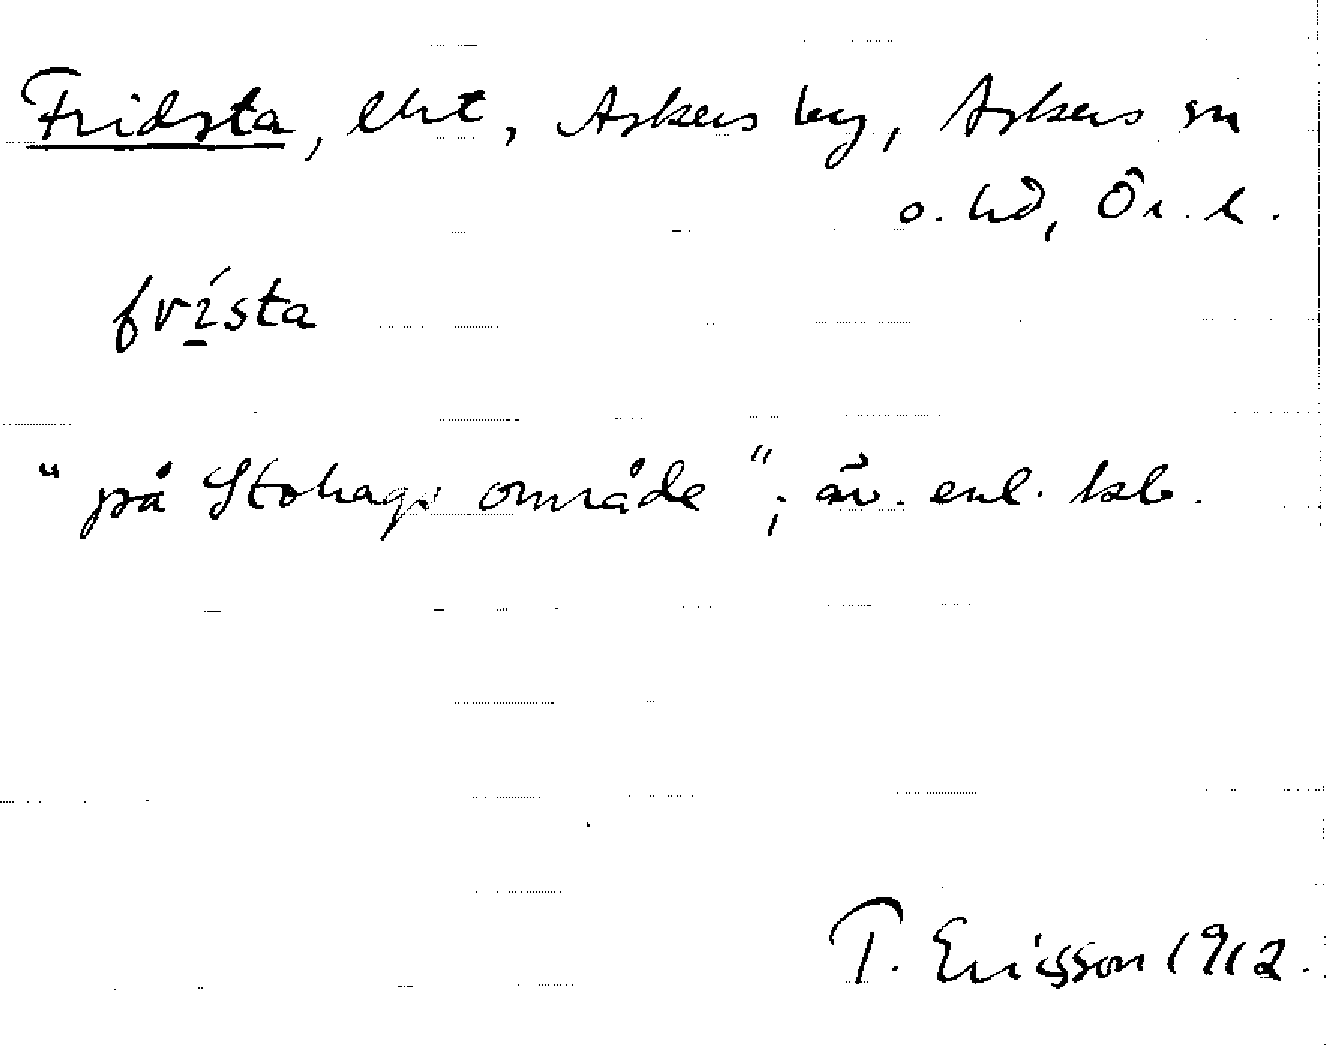 Fridsta, lht, Askers by, Askers sn
o. hd, Ör. l.
frísta
“på Stohags område”; äv. enl. kb.
T. Ericsson 1912.